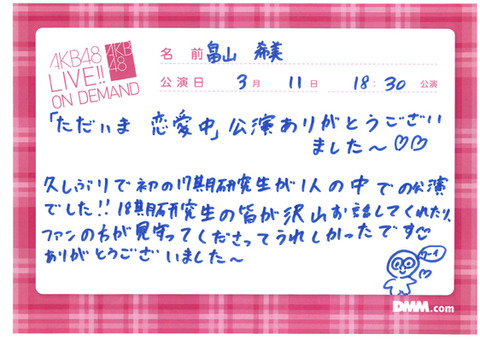 AKB48
LIVE!!
ON DEMAND
AKB
48
名 前 畠山 希美
公演日 3月 11日 18:30 公演
「ただいま 恋愛中」公演ありがとうござい
ました〜♡♡
久しぶりで初の17期研究生が1人の中での公演
でした!! 18期研究生の皆が沢山お話してくれたり、
ファンの方が見守ってくださってうれしかったです♡
ありがとうございました〜
DMM.com